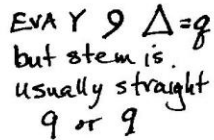 EVA Y 9 Δ=q
but stem is
usually straight
9 or 9